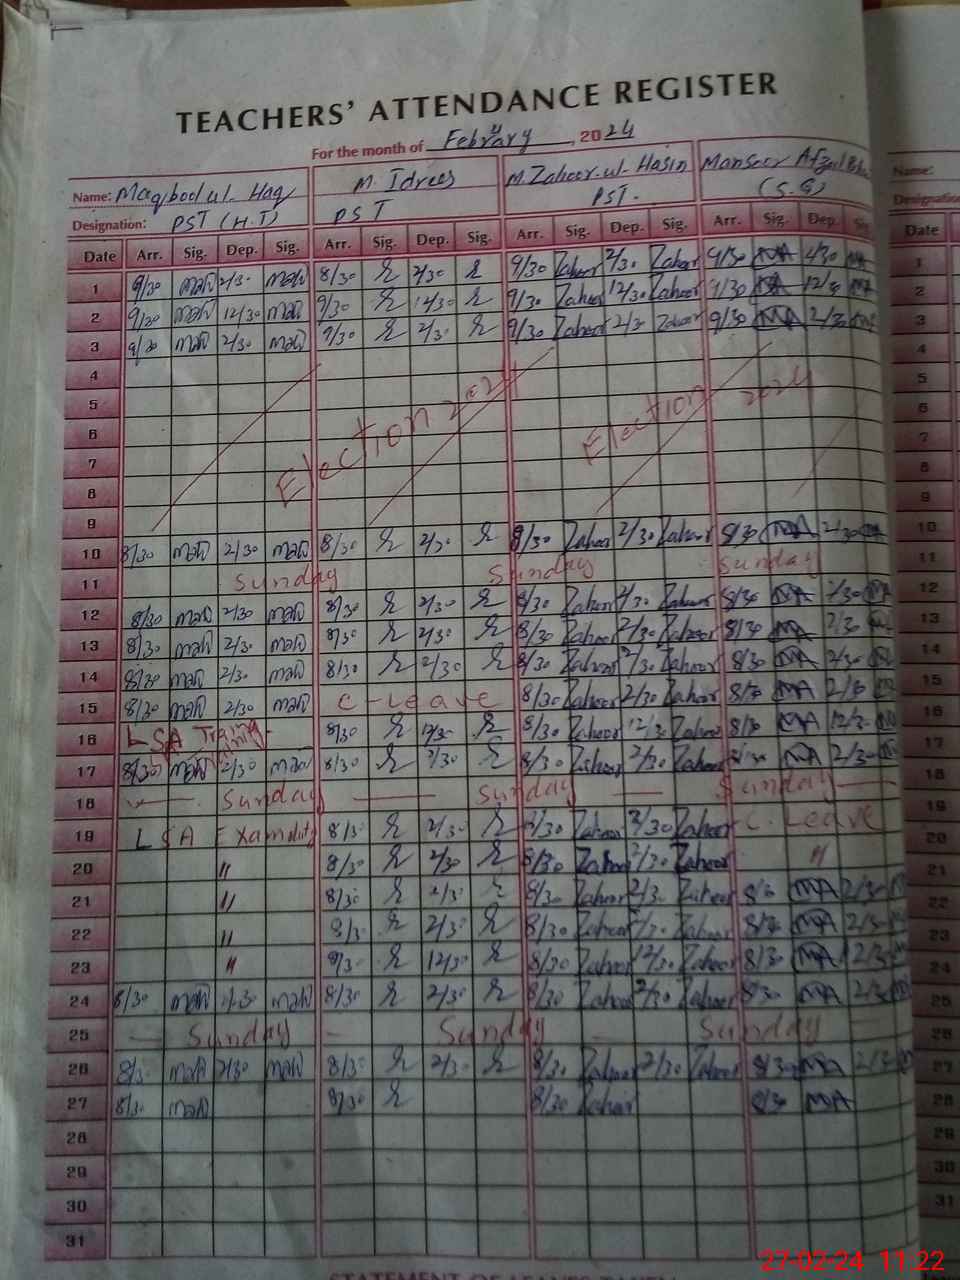 TEACHERS' ATTENDANCE REGISTER
For the month of February, 2024
Name: Maqbool ul. Haq M. Idrees M. Zaheer. ul. Hasin Mansoor Afzal
Designation: PST (H.T) PST PST. (S.G)
Date Arr. Sig. Dep. Sig. Arr. Sig. Dep. Sig. Arr. Sig. Dep. Sig. Arr. Sig. Dep.
1 9/30 2/30 8/30 2/30 9/30 Zaheer 2/30 Zaheer 9/30 MA 2/30
2 9/30 12/30 9/30 12/30 9/30 Zaheer 12/30 Zaheer 9/30 MA 12/30
3 9/30 2/30 9/30 2/30 9/30 Zaheer 2/30 Zaheer 9/30 MA 2/30
4
5
6 Election 2024 Election 2024
7
8
9
10 8/30 2/30 8/30 2/30 8/30 Zaheer 2/30 Zaheer 8/30 MA 2/30
11 Sunday Sunday Sunday
12 8/30 2/30 8/30 2/30 8/30 Zaheer 2/30 Zaheer 8/30 MA 2/30
13 8/30 2/30 8/30 2/30 8/30 Zaheer 2/30 Zaheer 8/30 MA 2/30
14 8/30 2/30 8/30 2/30 8/30 Zaheer 2/30 Zaheer 8/30 MA 2/30
15 8/30 2/30 C-Leave 8/30 Zaheer 2/30 Zaheer 8/30 MA 2/30
16 LSA Training 8/30 12/30 8/30 Zaheer 12/30 Zaheer 8/30 MA 12/30
17 8/30 2/30 8/30 2/30 8/30 Zaheer 2/30 Zaheer MA 2/30
18 Sunday Sunday Sunday
19 LSA Exam duty 8/30 2/30 Zaheer 2/30 Zaheer C. Leave
20 " 8/30 2/30 8/30 Zaheer 2/30 Zaheer "
21 " 8/30 2/30 8/30 Zaheer 2/30 Zaheer 8/30 MA 2/30
22 " 8/30 2/30 8/30 Zaheer 2/30 Zaheer 8/30 MA 2/30
23 " 12/30 8/30 Zaheer 12/30 Zaheer 8/30 MA 2/30
24 8/30 2/30 8/30 2/30 8/30 Zaheer 2/30 Zaheer 8/30 MA 2/30
25 Sunday Sunday Sunday
26 8/30 2/30 8/30 2/30 8/30 Zaheer 2/30 Zaheer 8/30 MA 2/30
27 8/30 8/30 8/30 Zaheer 8/30 MA
28
29
30
31
Name:
Designation
Date
1
2
3
4
5
6
7
8
9
10
11
12
13
14
15
16
17
18
19
20
21
22
23
24
25
26
27
28
29
30
31
27-02-24 11:22